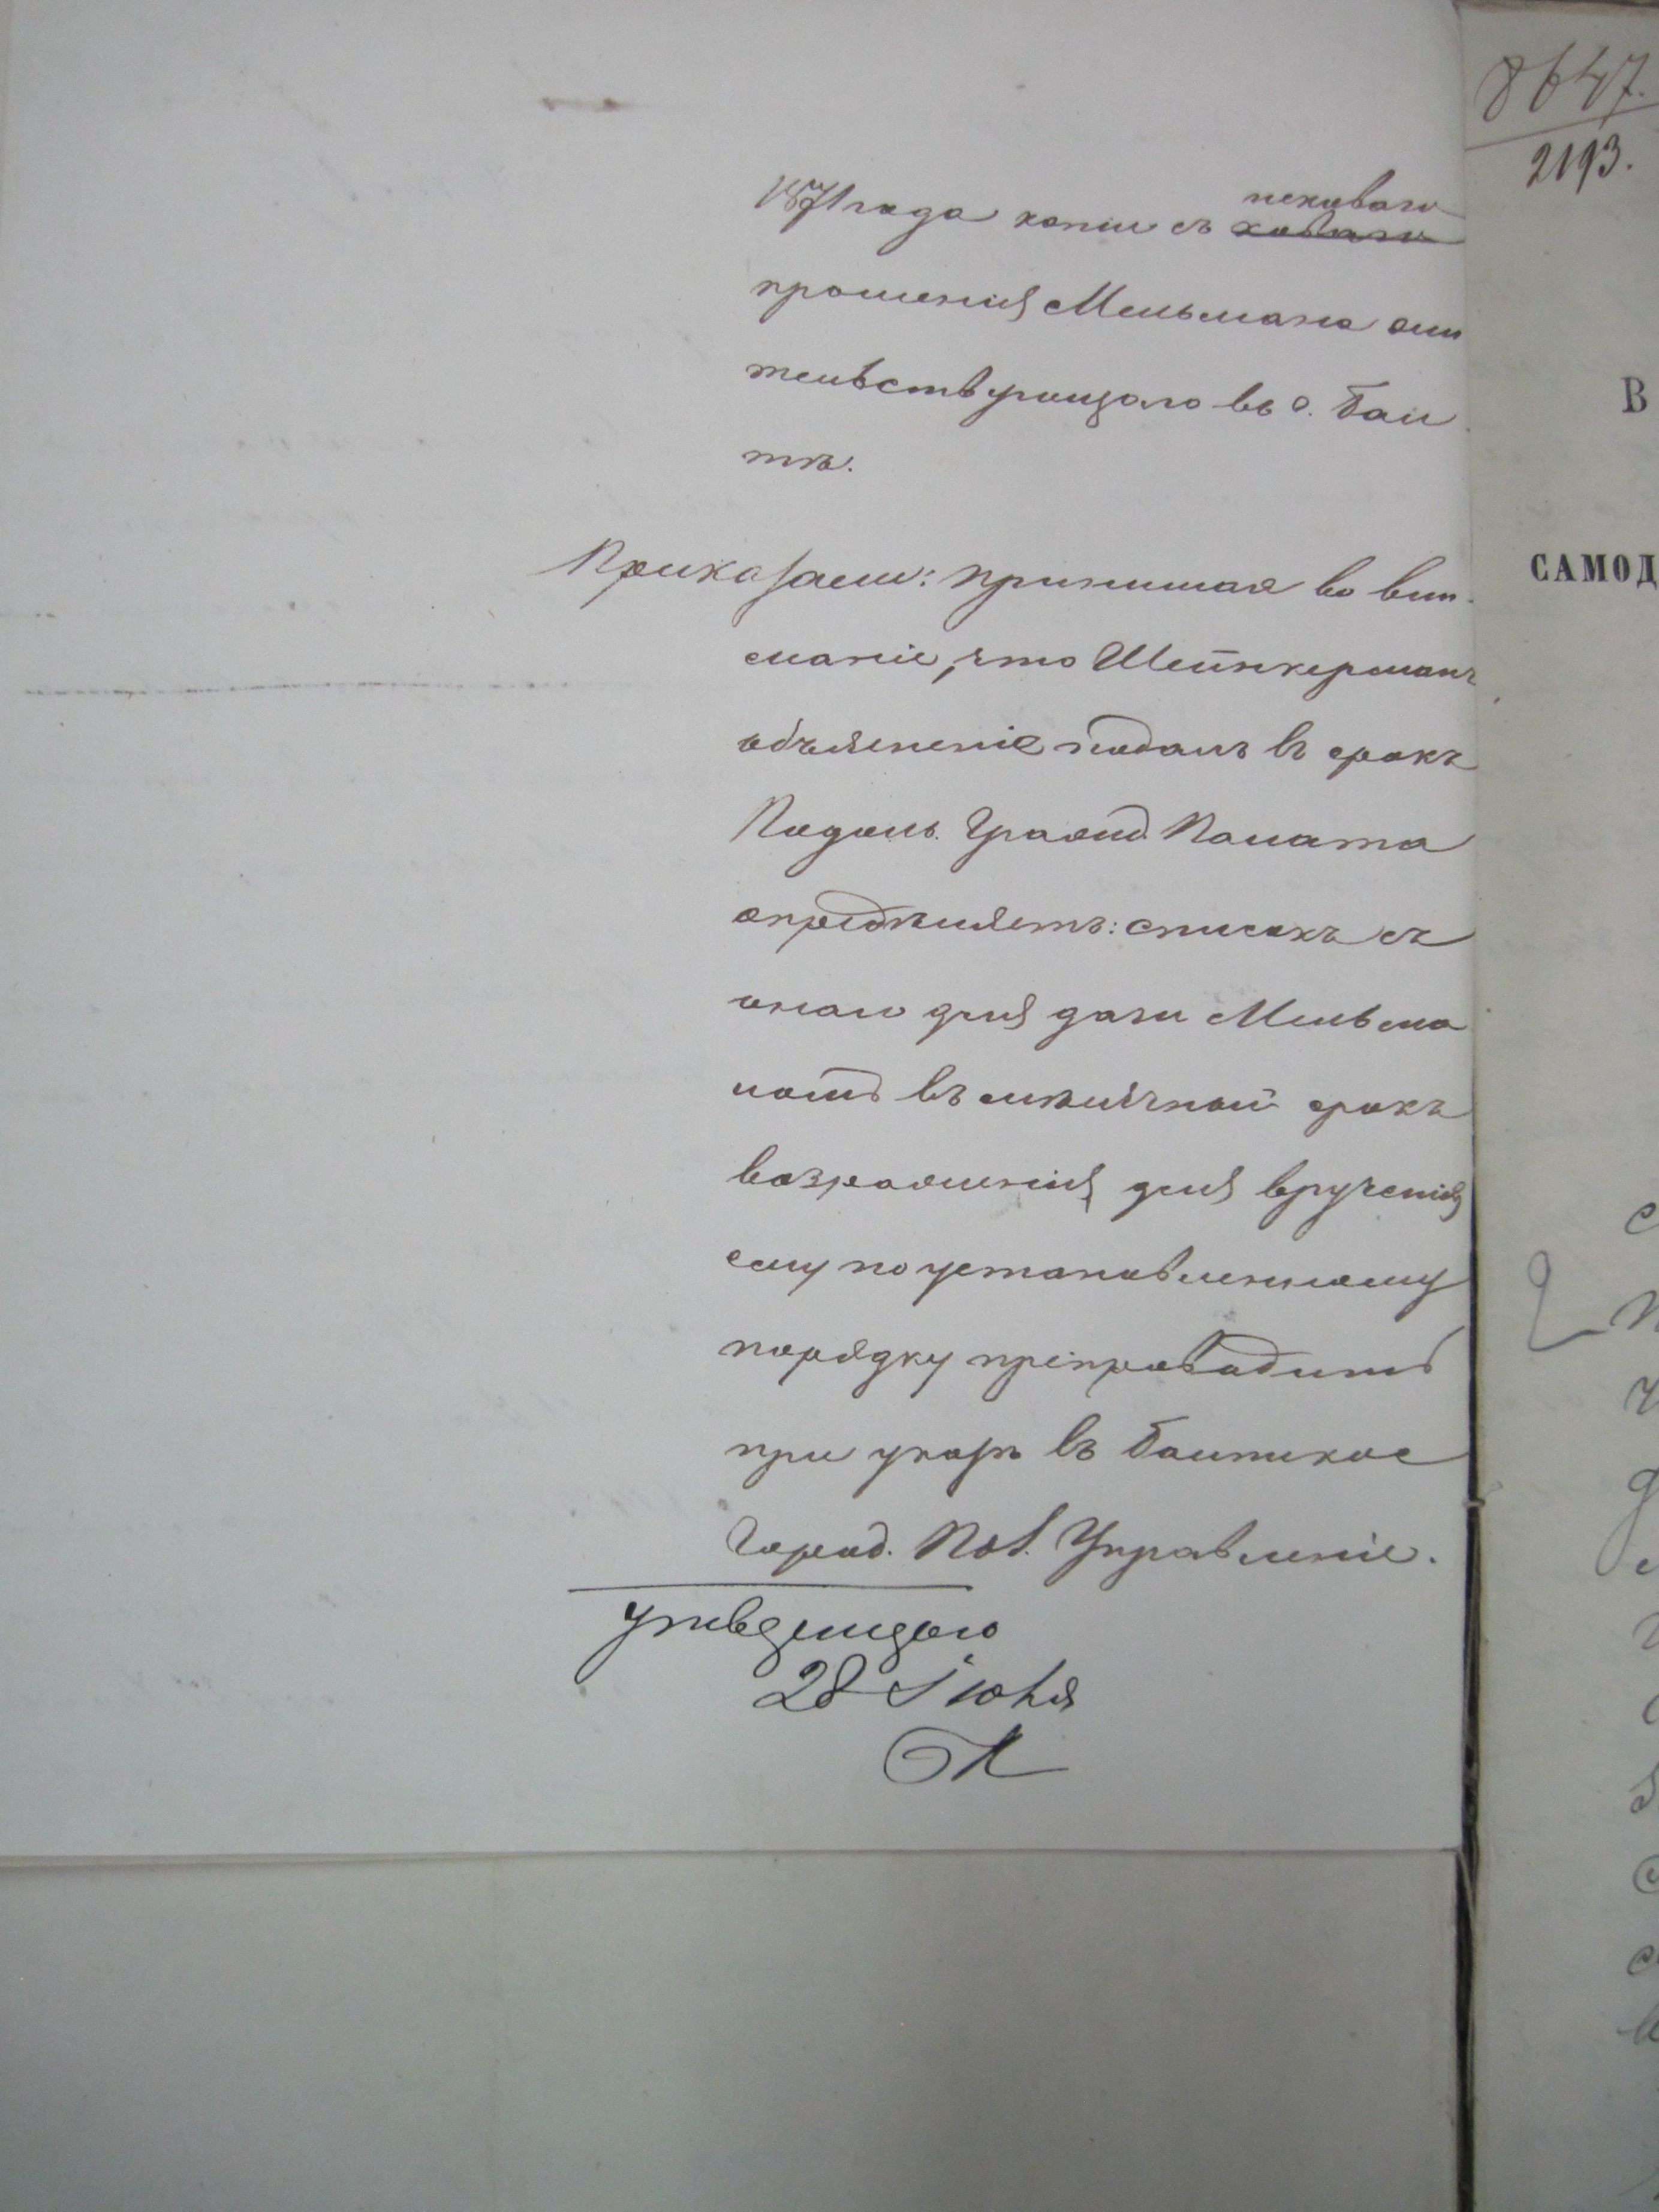 1871 года копіи съ искового ховаго
прошенія Мельмана жи
тельствующаго въ г. Бал
тѣ.
Приказали: принимая во вни
маніе, что Шейнкерманъ
объясненіе подалъ въ срокъ
Подоль. Гражд. Палата
опредѣляетъ: списокъ съ
онаго для дачи Мельма
номъ въ мѣсячный срокъ
возраженія для врученія
ему по установленному
порядку препроводить
при указѣ въ Балтское
Город. Пол. Управленіе.
утверждаю
28 Іюня
8647.
2193.
В
САМОД